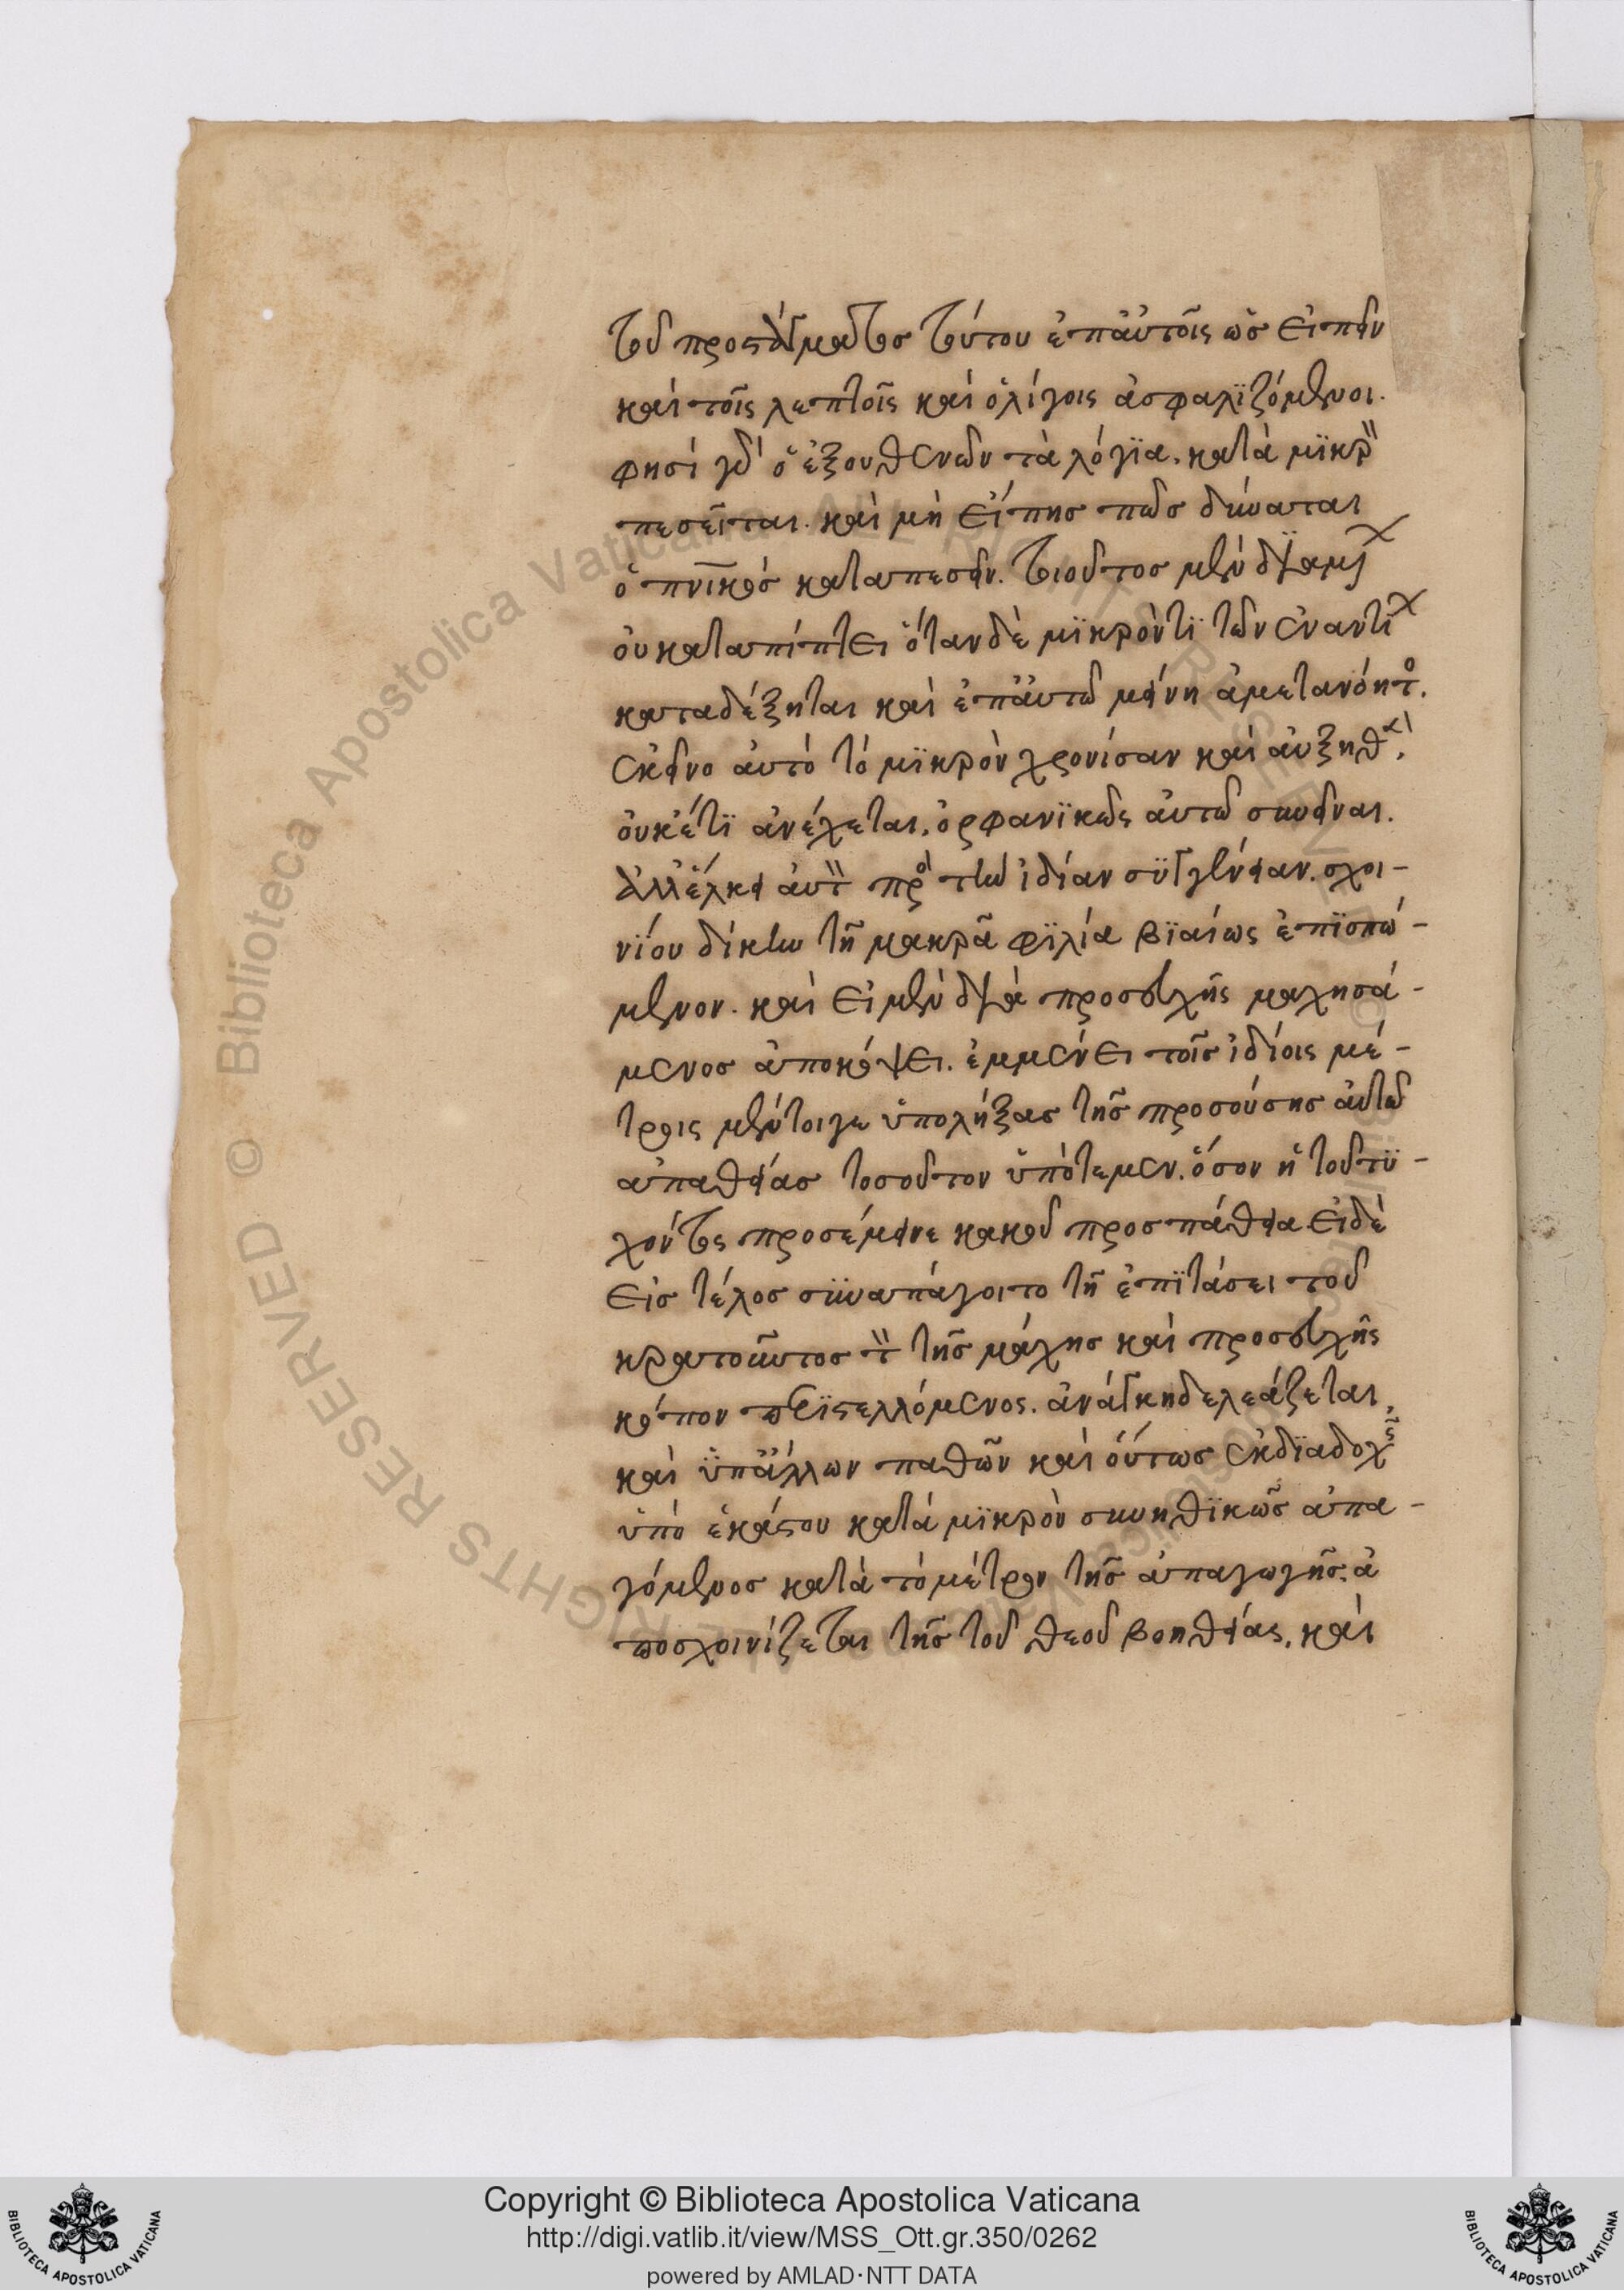 τοῦ προστάγματος τούτου ἐπ' αὐτοῖς ὡς εἰπεῖν
καὶ τοῖς λεπτοῖς καὶ ὀλίγοις ἀσφαλϊζόμενοι.
φησὶ γὰρ ὁ ἐξουθενῶν τὰ λόγϊα, κατὰ μϊκρὸν
πεσεῖται. καὶ μὴ εἴπης πῶς δύναται
ὁ πνικὸς καταπεσεῖν. τοιοῦτος μὲν διαμείνας
οὐ καταπίπτει ὅταν δὲ μϊκρόν τϊ τῶν ἐναντίων
καταδέξηται καὶ ἐπ' αὐτῶ μείνη ἀμετανόητος.
ἐκεῖνο αὐτὸ τὸ μϊκρὸν χρονίσαν καὶ αὐξηθὲν,
οὐκέτϊ ἀνέχεται, ὀρφανϊκῶς αὐτῶ συνεῖναι.
ἀλλ' ἕλκει αὐτὸν πρὸς τὴν ἰδίαν συγγένειαν. σχοι-
νίου δίκην τῆ μακρᾶ φϊλία βϊαίως ἐπϊσπώ-
μενον. καὶ εἰ μὲν διὰ προσευχῆς μαχησά-
μενος ἀποκόψει. ἐμμένει τοῖς ἰδίοις μέ-
τροις μέντοιγε ὑπολήξας τῆς προσούσης αὐτῶ
ἀπαθείας τοσοῦτον ὑπότεμεν. ὅσον ἡ τοῦ τυ-
χόντος προσέμεινε κακοῦ προσπάθεια εἰ δὲ
εἰς τέλος συναπάγοιτο τῆ ἐπϊτάσει τοῦ
κρατοῦντος τὸν τῆς μάχης καὶ προσευχῆς
κόπον περϊστελλόμενος. ἀνάγκη δελεάζεται,
καὶ ὑπ' ἄλλων παθῶν καὶ οὕτως ἐκ δϊαδοχῆς
ὑπὸ ἑκάστου κατὰ μϊκρὸν συνηθϊκῶς ἀπα-
γόμενος κατὰ τὸ μέτρον τῆς ἀπαγωγῆς. ἀ
ποσχοινίζεται τῆς τοῦ θεοῦ βοηθείας, καὶ
Copyright © Biblioteca Apostolica Vaticana
http://digi.vatlib.it/view/MSS_Ott.gr.350/0262
powered by AMLAD·NTT DATA